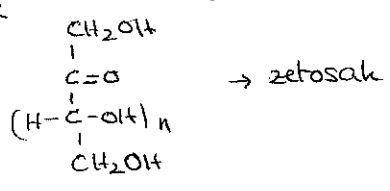 CH2OH
C=O → zetosak
(H-C-OH)n
CH2OH